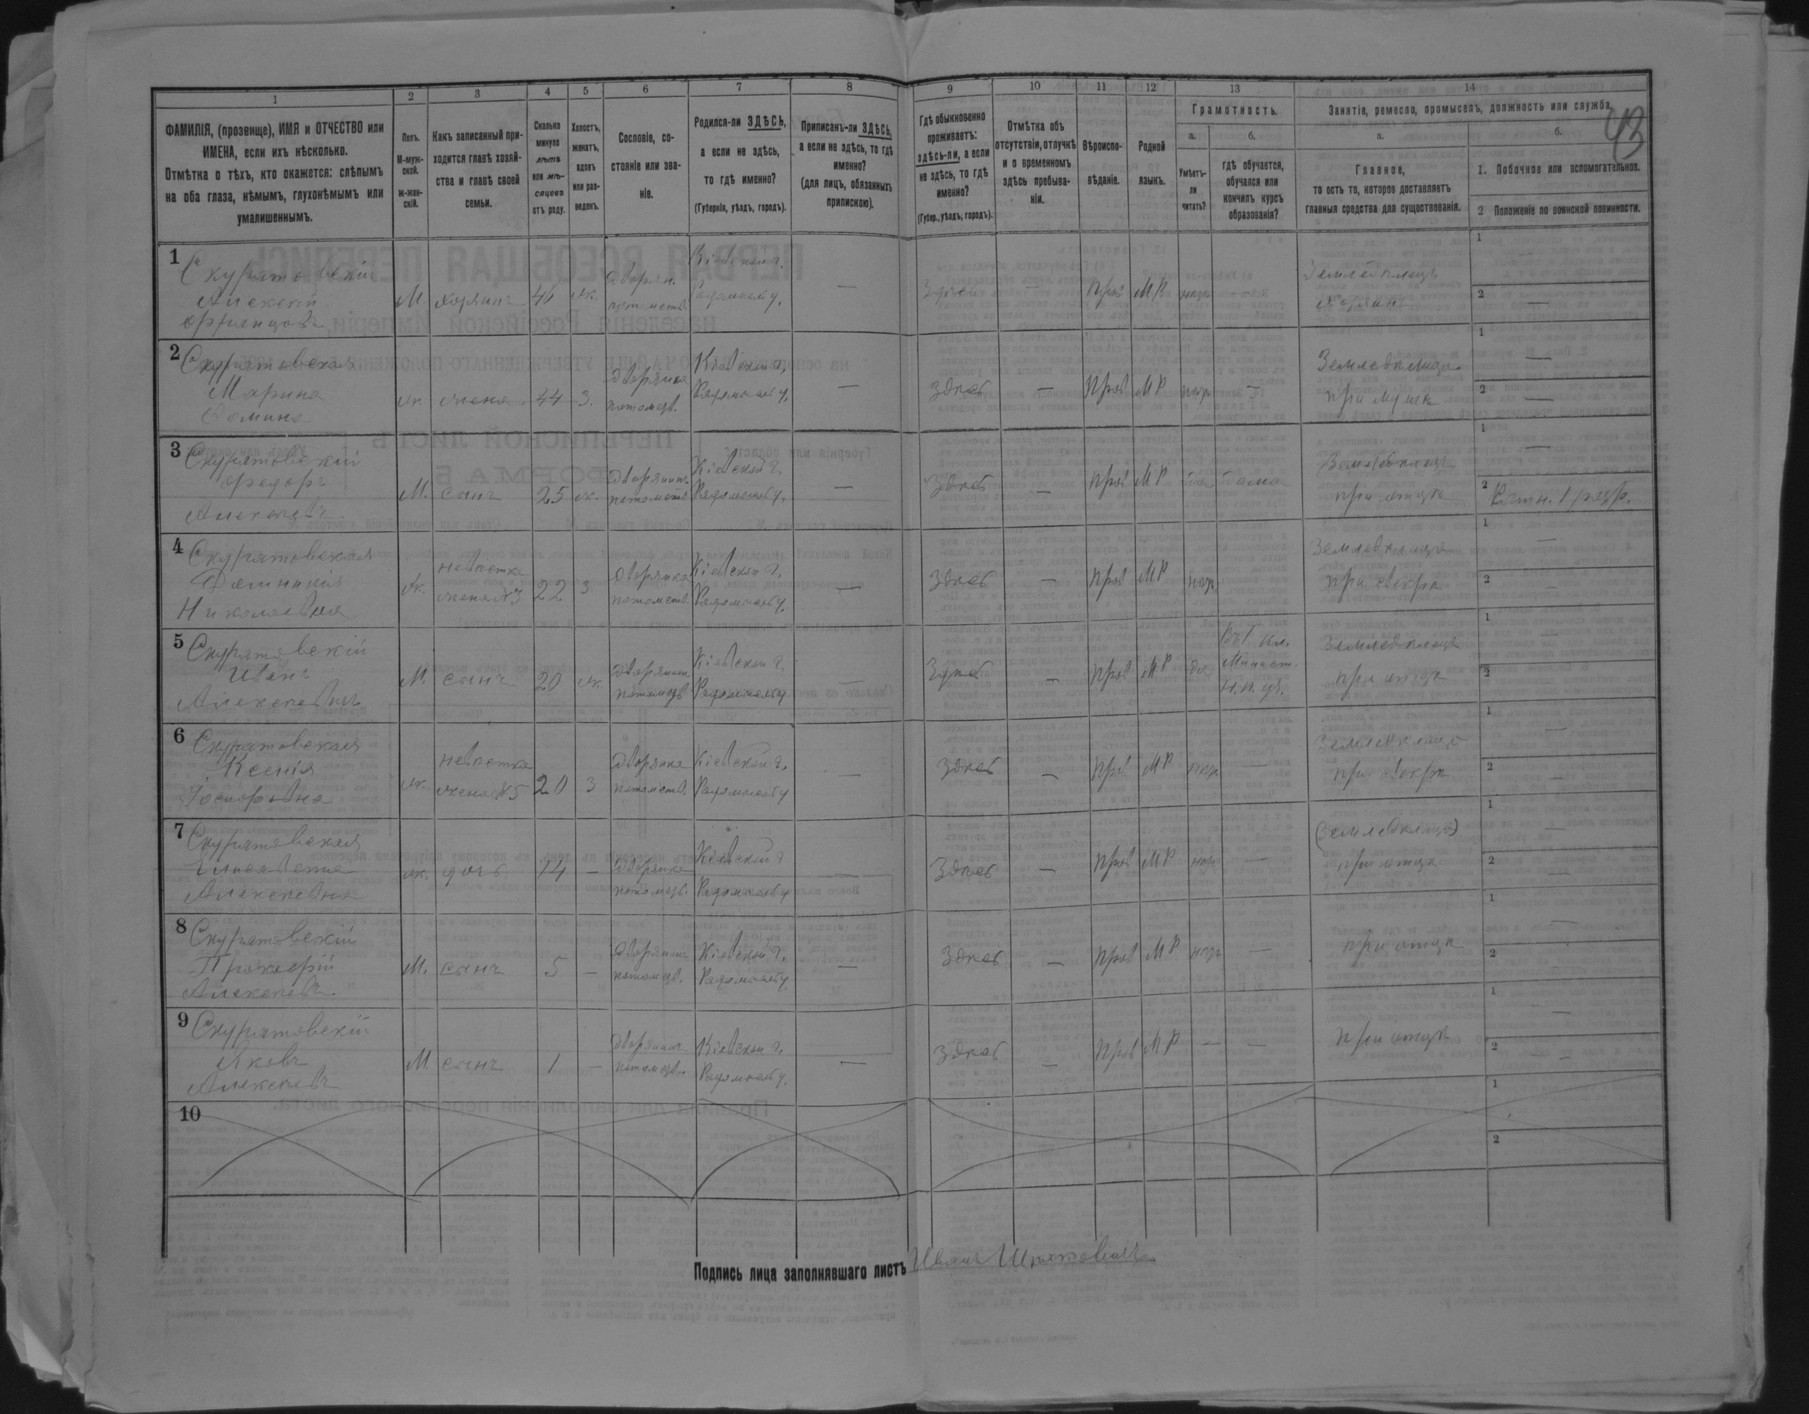 1 2 3 4 5 6 7 8 9 10 11 12 13 14
ФАМИЛІЯ, (прозвище), ИМЯ и ОТЧЕСТВО или
ИМЕНА, если ихъ нѣсколько.
Отмѣтка о тѣхъ, кто окажется: слѣпымъ
на оба глаза, нѣмымъ, глухонѣмымъ или
умалишеннымъ.
Полъ.
М-муж-
ской.
ж-жен-
скій.
Какъ записанный при-
ходится главѣ хозяй-
ства и главѣ своей
семьи.
Сколько
минуло
лѣтъ
или мѣ-
сяцевъ
отъ роду.
Холостъ,
женатъ,
вдовъ
или раз-
веденъ.
Сословіе, со-
стояніе или зва-
ніе.
Родился-ли ЗДѢСЬ,
а если не здѣсь,
то гдѣ именно?
(Губернія, уѣздъ, городъ).
Приписанъ-ли ЗДѢСЬ,
а если не здѣсь, то гдѣ
именно?
(для лицъ, обязанныхъ
припискою).
Гдѣ обыкновенно
проживаетъ:
здѣсь-ли, а если
не здѣсь, то гдѣ
именно?
(Губер., уѣздъ, городъ).
Отмѣтка объ
отсутствіи, отлучкѣ
и о временномъ
здѣсь пребыва-
ніи.
Вѣроиспо-
вѣданіе.
Родной
языкъ.
Грамотность.
а.
Умѣетъ-
ли
читать?
б.
гдѣ обучается,
обучался или
кончилъ курсъ
образованія?
Занятіе, ремесло, промыселъ, должность или служба.
а.
Главное,
то есть то, которое доставляетъ
главныя средства для существованія.
б.
1. Побочное или вспомогательное.
2 Положеніе по воинской повинности.
43
1 Скуратовскій
Алексѣй
М. хозяинъ 46 ж. дворян. потомств. Кіевской г. Радомысл у. — здѣсь — Прав М Р негр.
Земледѣлецъ
хозяинъ
1 —
2 —
2 Скуратовская
Марина
Фомина
ж. жена 44 з. дворянка потомств. Кіевской г. Радомысл у. — здѣсь — Прав М Р негр —
Земледѣлица
при мужѣ
1 —
2 —
3 Скуратовскій
Федоръ
Алексѣевъ
М. сынъ 25 ж. дворянин. потомств. Кіевской г. Радомысл у. — здѣсь — Прав М Р
Земледѣлецъ
при отцѣ
1 —
2
4 Скуратовская
Николаевна
ж. невѣстка жена №3 22 з. дворянка потомств. Кіевской г. Радомысл у. — здѣсь — Прав М Р негр —
Земледѣлица
при свекрѣ
1 —
2 —
5 Скуратовскій
Иванъ
Алексѣевичъ
М. сынъ 20 ж. дворянин потомств. Кіевской г. Радомысл у — здѣсь — Прав М Р да
Земледѣлецъ
при отцѣ
1 —
2
6 Скуратовская
Ксенія
ж. невѣстка жена №5 20 з дворянка потомств. Кіевской г. Радомысл у — здѣсь — Прав М Р негр —
Земледѣлица
при свекрѣ
1 —
2 —
7 Скуратовская
Елисавета
Алексѣевна
ж. дочь 14 — дворянка потомств. Кіевской г Радомысл у — здѣсь — Прав М Р негр —
(Земледѣлица)
при отцѣ
1 —
2 —
8 Скуратовскій
Алексѣевъ
М. сынъ 5 — дворянин потомств. Кіевской г. Радомысл у — здѣсь — Прав М Р негр —
при отцѣ
1 —
2 —
9 Скуратовскій
Яковъ
Алексѣевъ
М сынъ 1 — дворянин потомств. Кіевской г. Радомысл у. — здѣсь — Прав М Р — —
при отцѣ
1 —
2 —
10
1
2
Подпись лица заполнявшаго листъ Иванъ